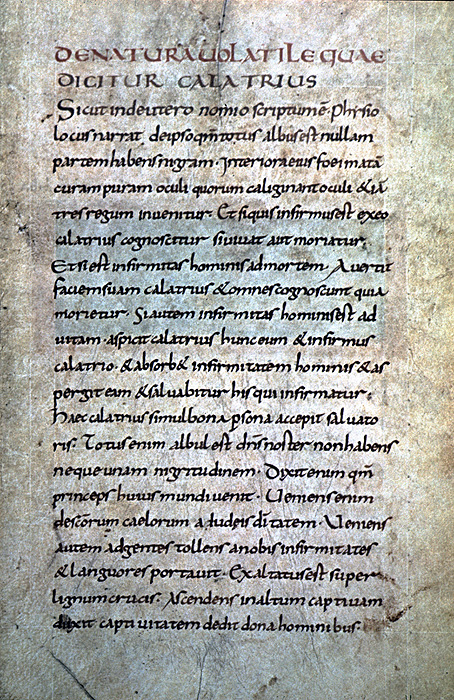 DE NATURA UOLATILE QUAE
DICITUR CALATRIUS
Sicut in deutero nomio scriptum ē. Physio
locus narrat de ipso qm̄ totus albus est nullam
partem habens nigram. Interiora eius foei mata
curam puram oculi quorum caliginant oculi & iā
tres regum inuenitur. Et siquis infirmus est exeo
calatrius cognoscitur si uiuat aut moriatur;
Et si est infirmitas hominis ad mortem. Auertit
faciem suam calatrius & omnes cognoscunt quia
morietur. Si autem infirmitas hominis est ad
uitam. aspicit calatrius hunc eum & infirmus
calatrio. & absorb& infirmitatem hominis & as
pergit eam & saluabitur his qui infirmatur;
Haec calatrius simul bona psona accepit saluato
ris; Totus enim albul est dn̄s noster non habens
neque unam nigritudinem. Dixit enim qm̄
princeps huius mundi uenit. Uemens enim
descorum caelorum a Iudeis dītatem. Uemens
autem ad gentes tollens a nobis infirmitates
& languores portauit. Exaltatus est super
lignum crucis. Ascendens in altum captiuam
dixit captiuitatem dedit dona hominibus.